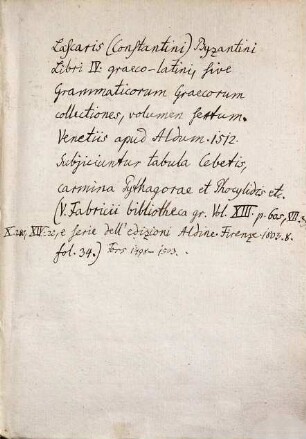 Lascaris (Constantini) Byzantini
Libri IV. graeco-latini, sive
Grammaticorum Graecorum
collectiones, volumen fertum.
Venetiis apud Aldum. 1512.
Subjiciuntur tabula Cebetis,
carmina Pythagorae et Phocylidis etc.
(V. Fabricii bibliotheca gr. Vol. XIII. p. 607, VII.
X. XIV. 32, e serie dell' edizioni Aldine. Firenze. 1803. 8.
fol. 34.)